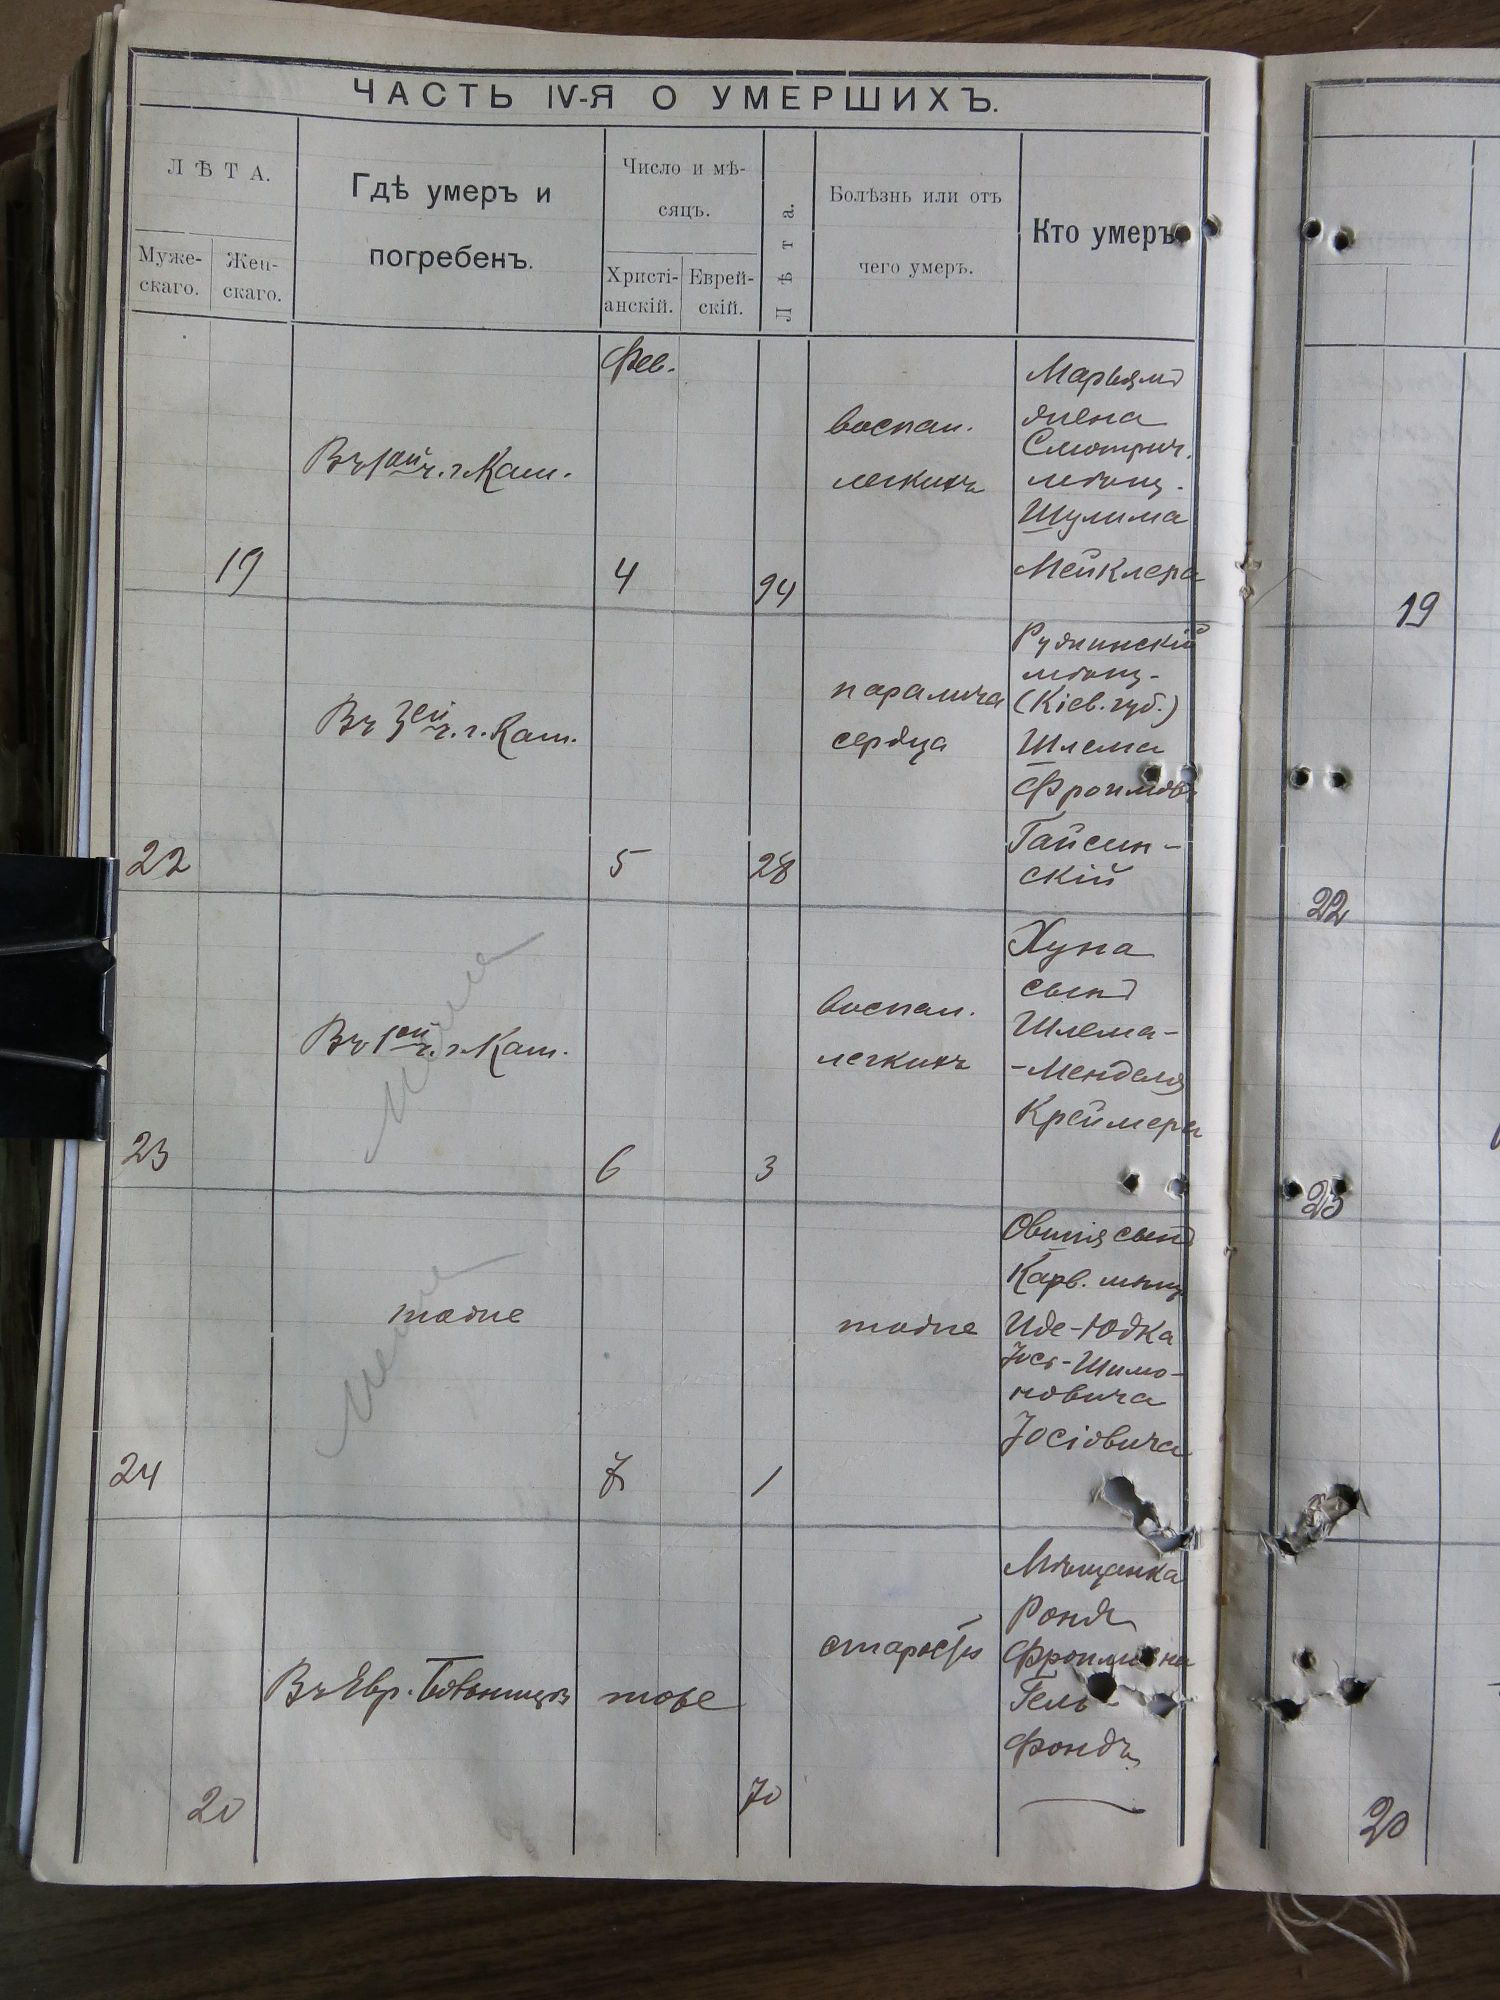 ЧАСТЬ IV-Я О УМЕРШИХЪ.
ЛѢТА.
Муже-
скаго.
Жен-
скаго.
Гдѣ умеръ и
погребенъ.
Число и мѣ-
сяцъ.
Христі-
анскій.
Еврей-
скій.
Лѣта.
Болѣзнь или отъ
чего умеръ.
Кто умеръ
19
Въ 1ой ч. г. Кам.
Фев.
4
94
воспал.
легкихъ
Марьямъ
жена
Смотрич.
мѣщ.
Шулима
Мейклера
22
Въ 3ей ч. г. Кам.
5
28
паралича
сердца
мѣщ.
(Кіев. губ.)
Шлема
Фроимовъ
Гайсин-
скій
23
Въ 1ой ч. г. Кам.
6
3
воспал.
легкихъ
Хуна
сынъ
Шлема-
-Менделя
Креймера
24
тоже
7
1
тоже
сынъ
Иде-Юдка
Іось-Шимо-
новича
Іосіовича
20
Въ Евр. Больницѣ
тоже
70
старость
Мѣщанка
Роня
Фроимовна
Гель-
фондъ
19
22
23
20